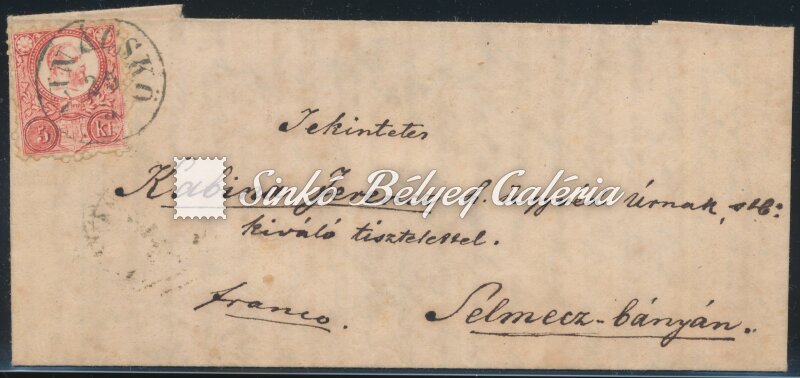 5 kr
Tekintetes
Kabina Jenő ügyvéd Úrnak, stb.
kiváló tisztelettel.
franco.
Selmecz-bányán.
Sinkó Bélyeg Galéria